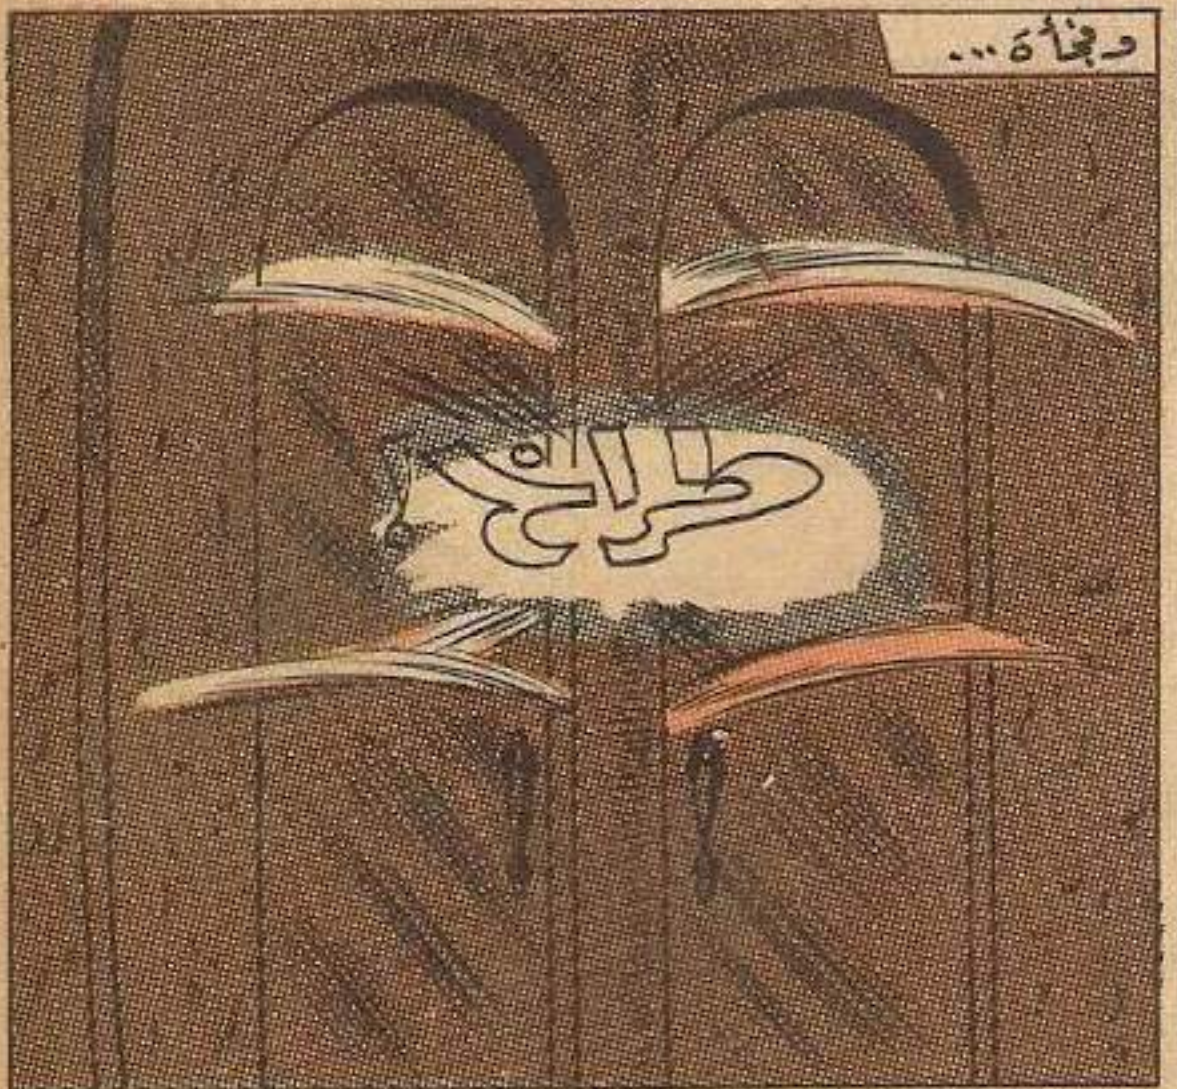 وفجأة...
طراخ